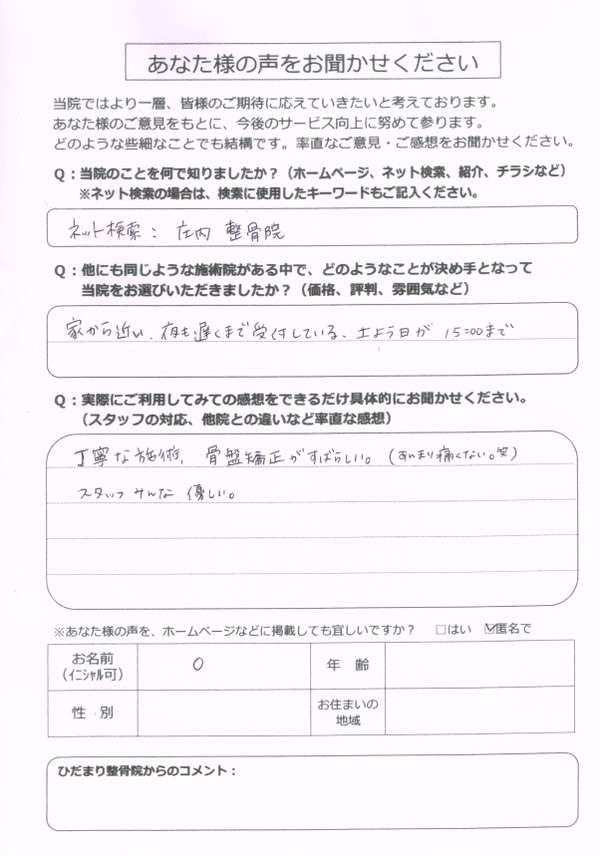 あなた様の声をお聞かせください
当院ではより一層、皆様のご期待に応えていきたいと考えております。
あなた様のご意見をもとに、今後のサービス向上に努めて参ります。
どのような些細なことでも結構です。率直なご意見・ご感想をお聞かせください。
Q：当院のことを何で知りましたか？（ホームページ、ネット検索、紹介、チラシなど）
※ネット検索の場合は、検索に使用したキーワードもご記入ください。
ネット検索： 庄内 整骨院
Q：他にも同じような施術院がある中で、どのようなことが決め手となって
当院をお選びいただきましたか？（価格、評判、雰囲気など）
家から近い、夜も遅くまで受付している、土よう日が 15:00まで
Q：実際にご利用してみての感想をできるだけ具体的にお聞かせください。
（スタッフの対応、他院との違いなど率直な感想）
丁寧な施術、骨盤矯正がすばらしい。（あんまり痛くない。笑）
スタッフみんな 優しい。
※あなた様の声を、ホームページなどに掲載しても宜しいですか？ □はい ☑匿名で
お名前 O 年 齢
（ｲﾆｼｬﾙ可）
性 別 お住まいの
地域
ひだまり整骨院からのコメント：